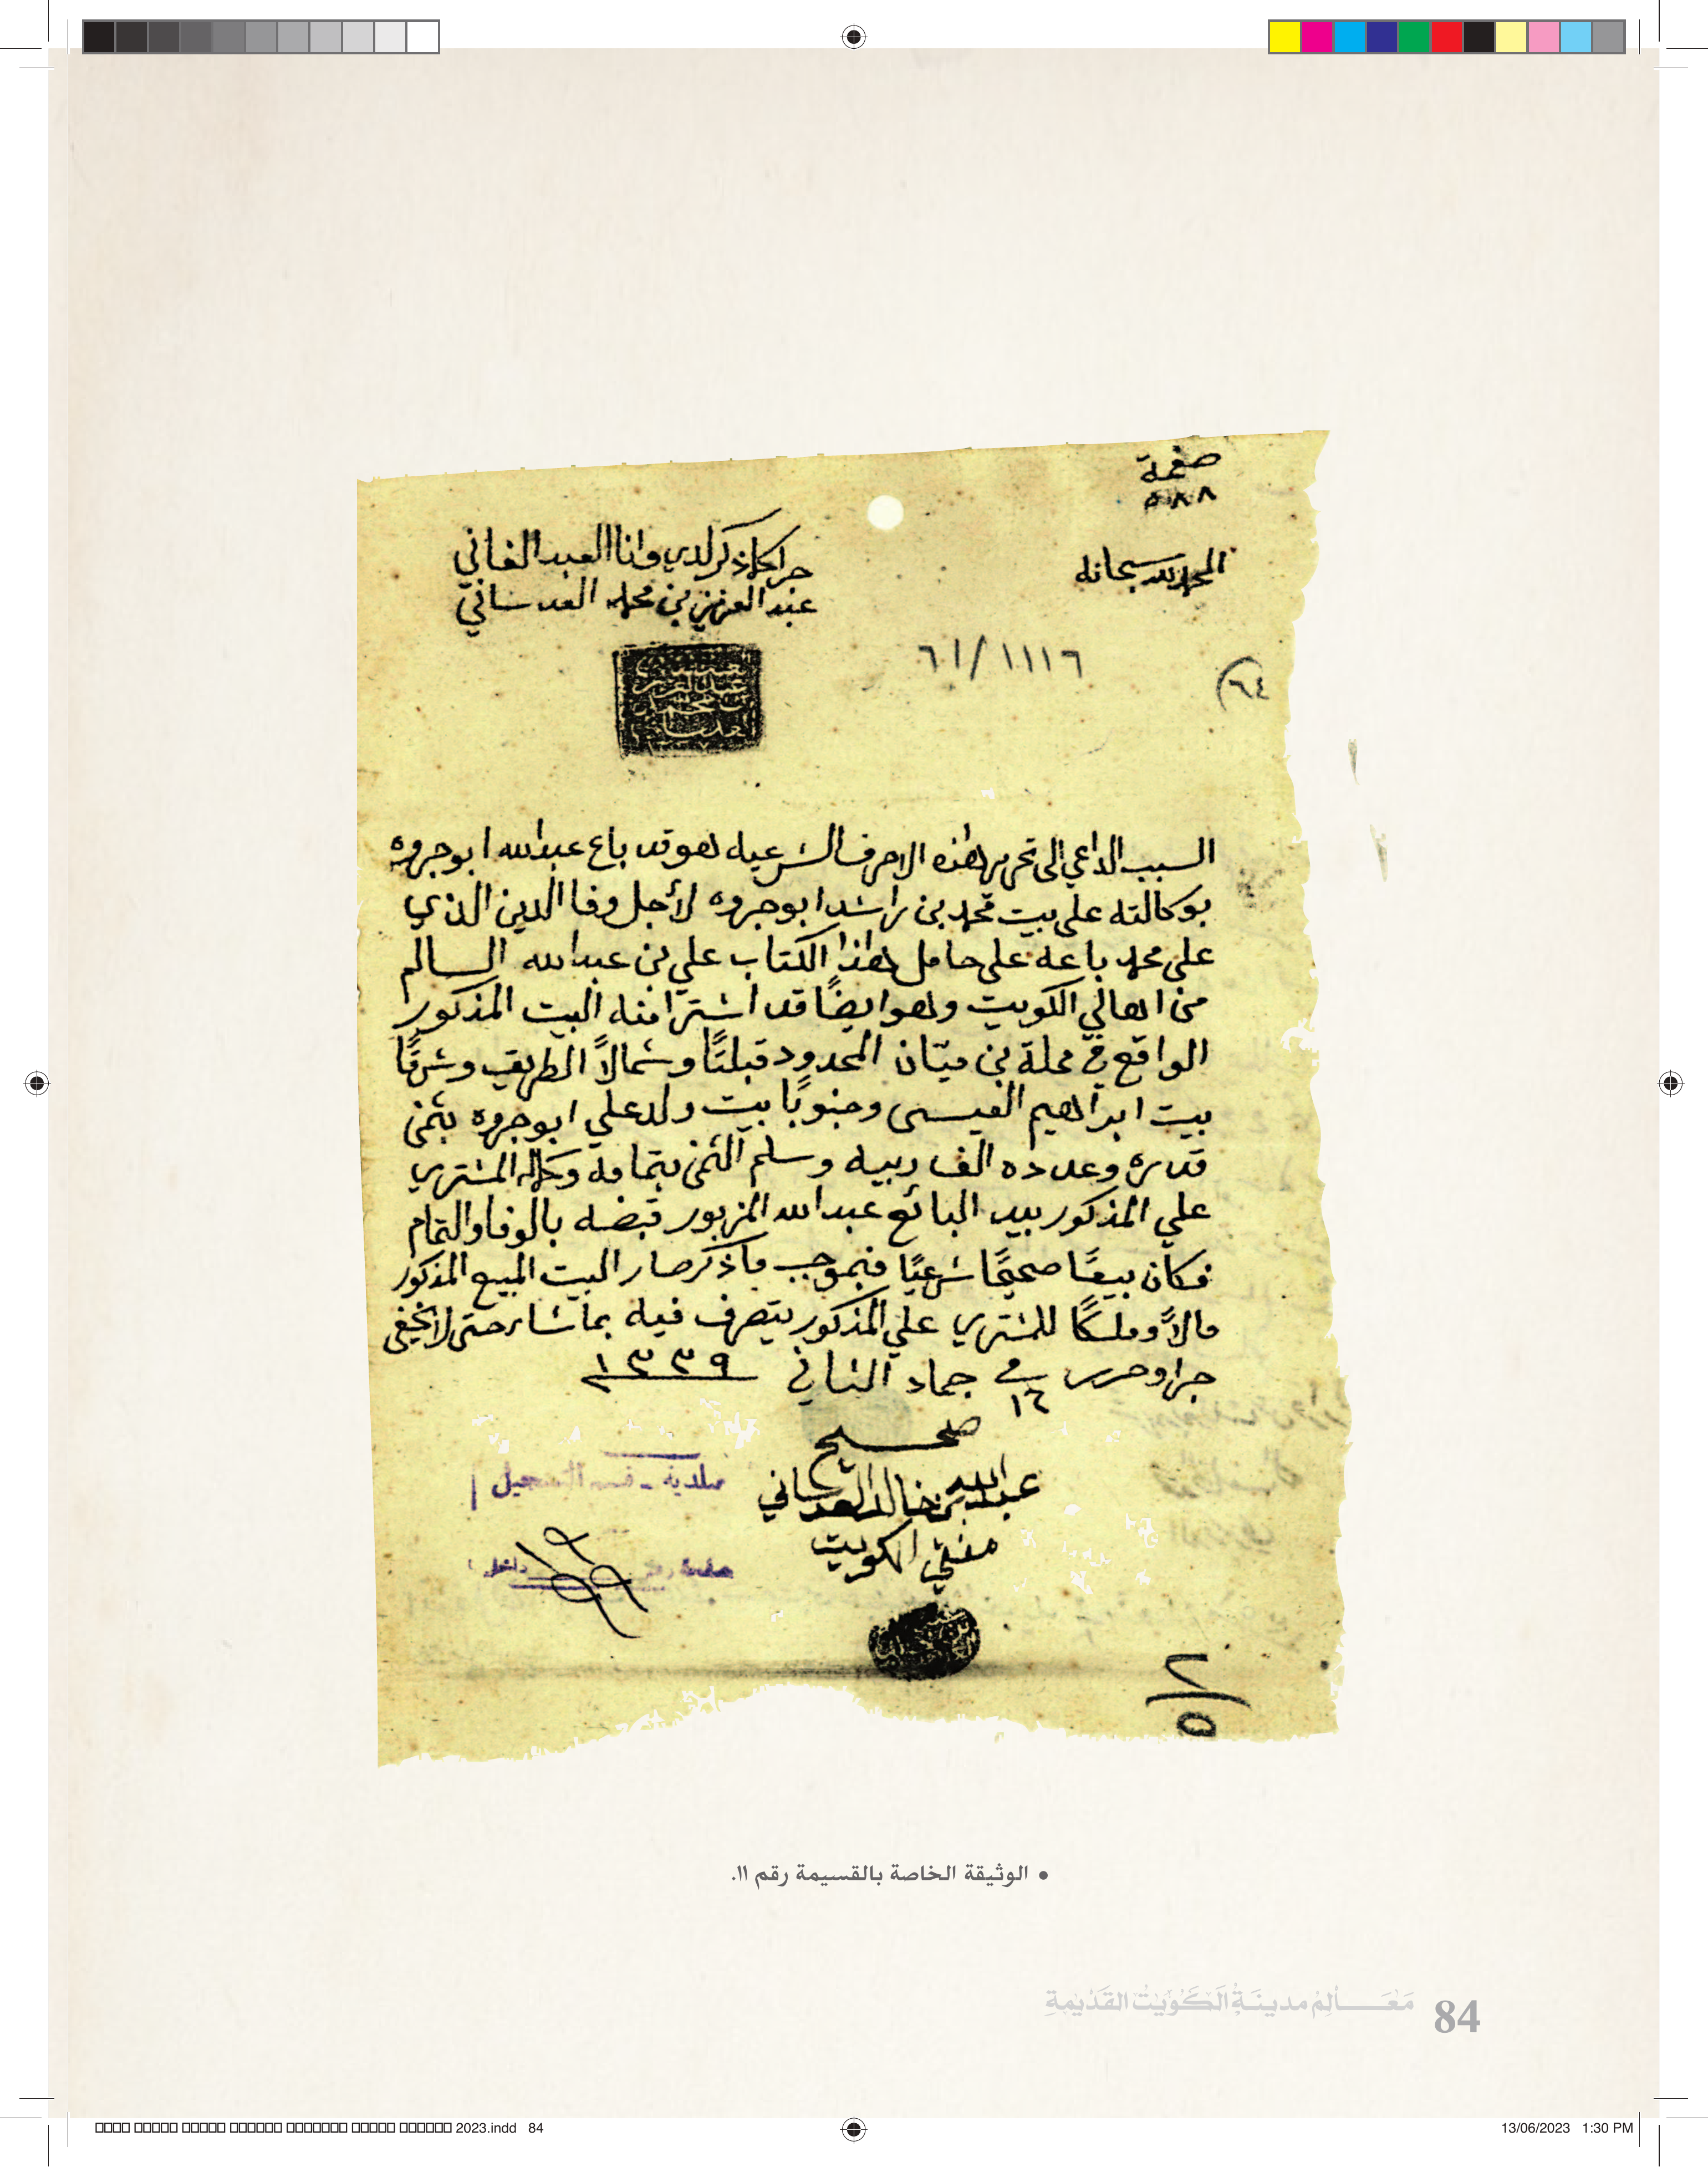 صفحة
٥٨٨
الحمد لله سبحانه
جرا كما ذكر لدي وانا العبد الفاني
عبد العزيز بن محمد العدساني
٦١/١١١٦
٦٤)
السبب الداعي الى تحرير هذه الاحرف الشرعيه هو قد باع عبدالله ابوجروه
بوكالته على بيت محمد بن راشد ابوجروه لأجل وفا الدين الذي
على محمد باعه على حامل هذا الكتاب علي بن عبدالله السالم
من اهالي الكويت وهو ايضًا قد اشترا منه البيت المذكور
الواقع في محلة بن ميّان المحدود قبلتًا وشمالاً الطريق وشرقًا
بيت ابراهيم العيسى وجنوبًا بيت ولد علي ابوجروه بثمن
قدره وعدده الف ربيه وسلم الثمن بتمامه وكماله المشتري
علي المذكور بيد البائع عبدالله المزبور قبضه بالوفا والتمام
فكان بيعًا صحيحًا شرعيًا فبموجب ما ذكر صار البيت المبيع المذكور
مالاً وملكًا للمشتري علي المذكور يتصرف فيه بما شاء حتى لا يخفى
جرا وحرر في ١٦ جماد الثاني ١٣٣٩
صحيح
عبدالله بن خالد العدساني
مفتي الكويت
بلدية - قسم التسجيل
صفحة رقم داخل
٢/٥
• الوثيقة الخاصة بالقسيمة رقم ١١.
مَعَالِمُ مدينَةِ الكُوَيْتِ القَدِيمَةِ
84
2023.indd 84
13/06/2023 1:30 PM